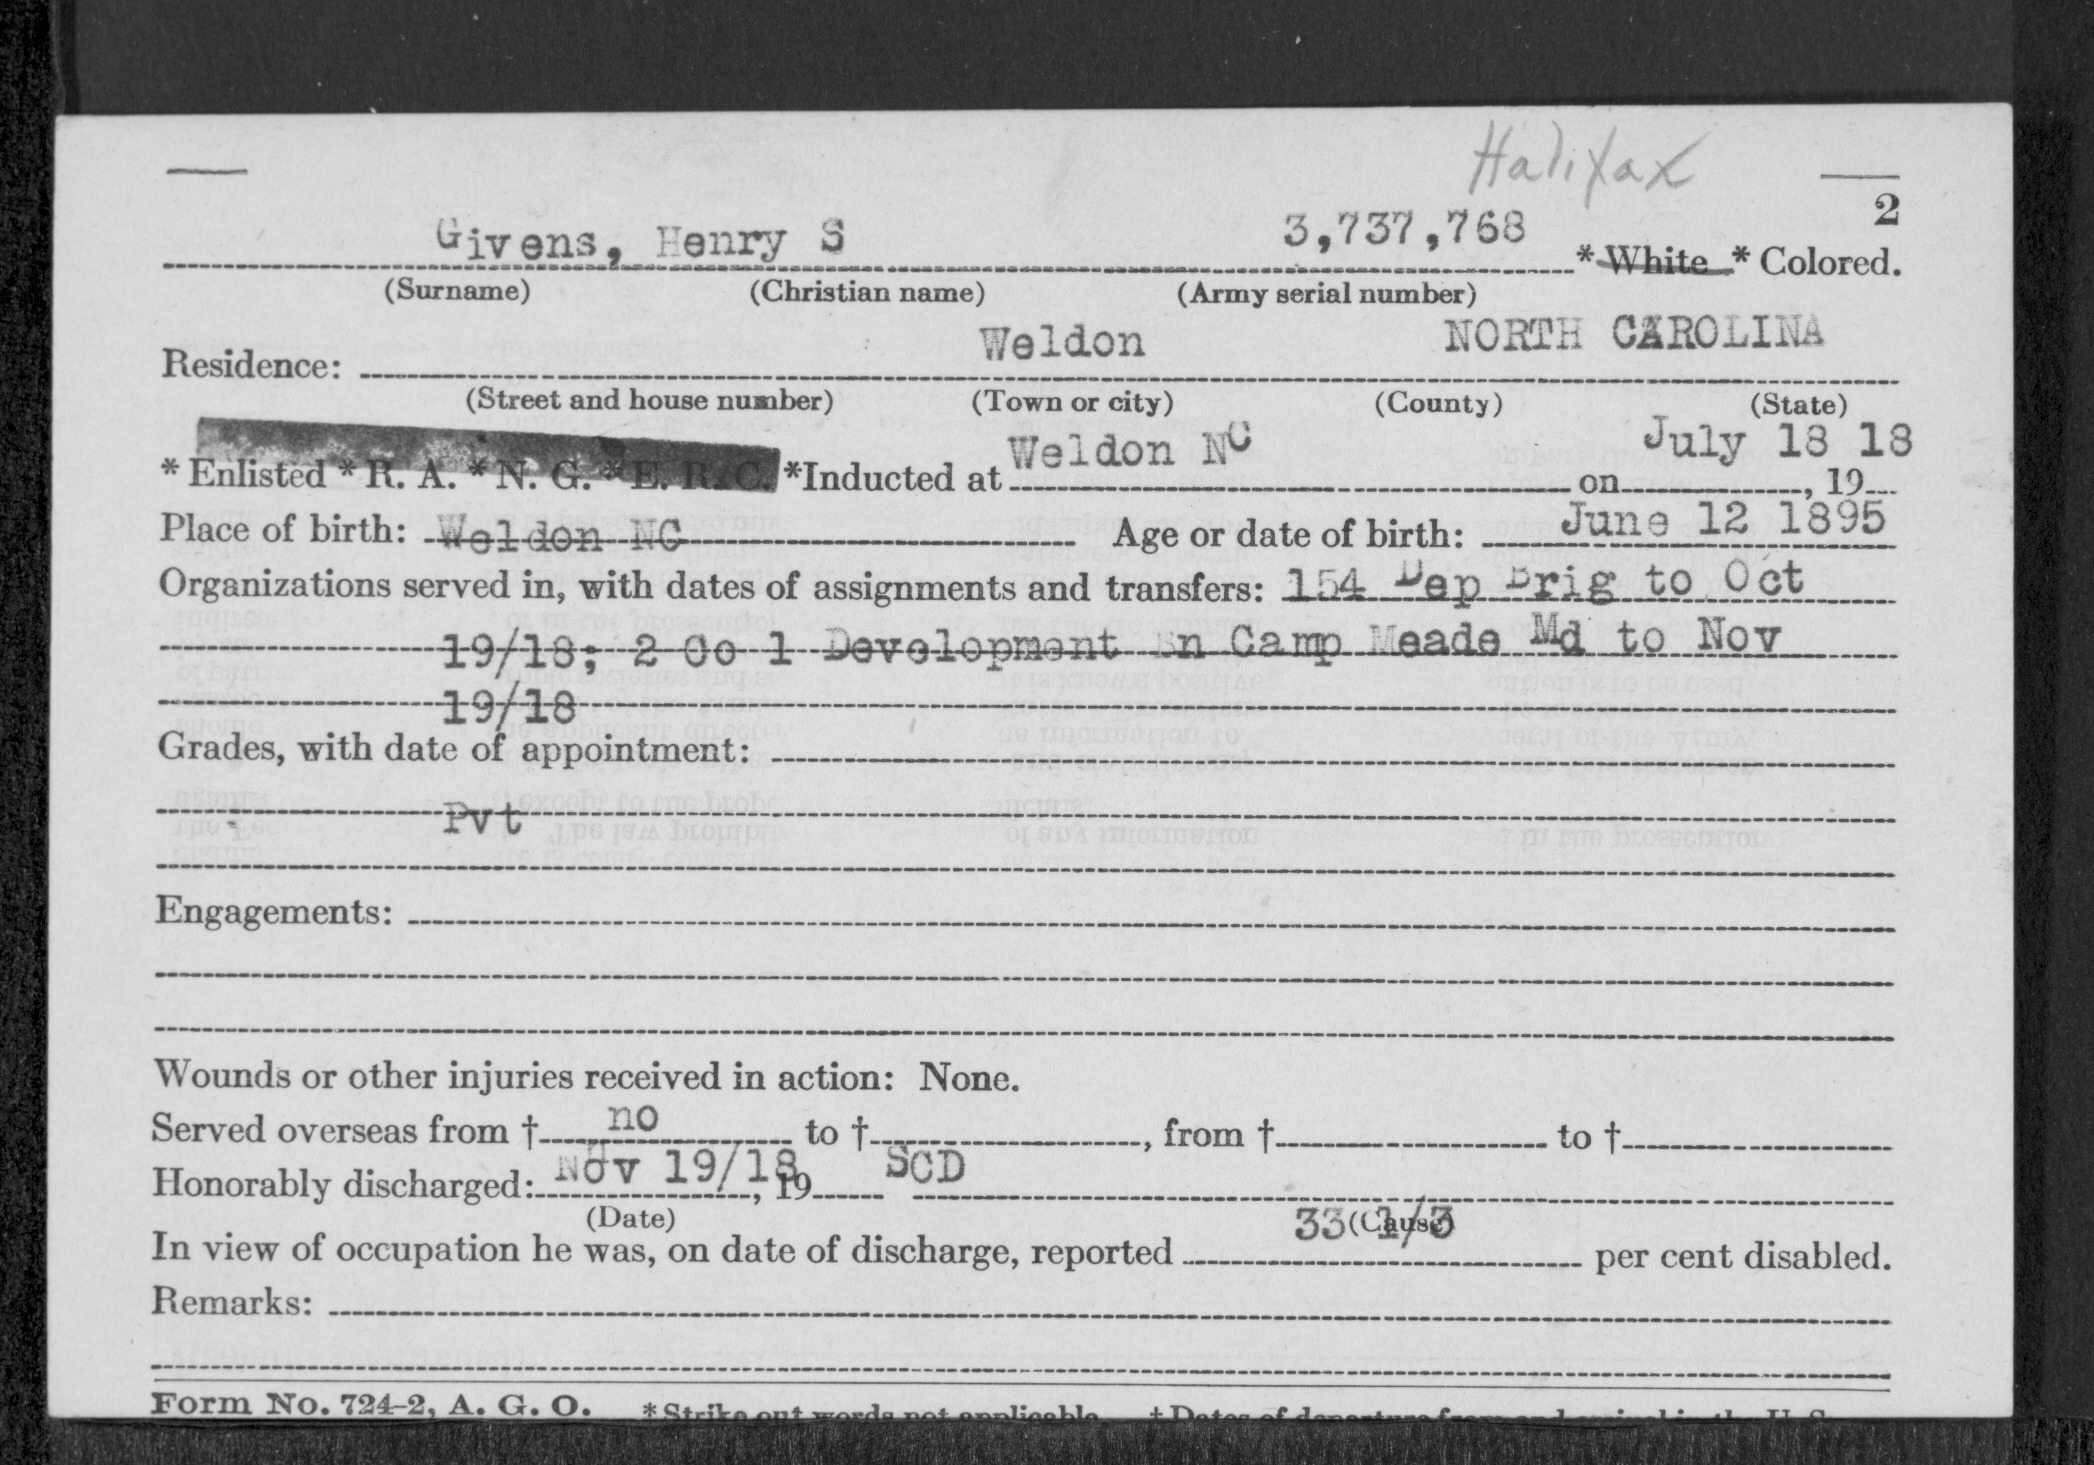 Halifax
2
Givens, Henry S 3,737,768 * White * Colored.
(Surname) (Christian name) (Army serial number)
Residence: Weldon NORTH CAROLINA
(Street and house number) (Town or city) (County) (State)
* Enlisted * R. A. * N. G. * E. R. C. *Inducted at Weldon NC on July 18 18, 19
Place of birth: Weldon NC Age or date of birth: June 12 1895
Organizations served in, with dates of assignments and transfers: 154 Dep Brig to Oct
19/18; 2 Co 1 Development Bn Camp Meade Md to Nov
19/18
Grades, with date of appointment:
Pvt
Engagements:
Wounds or other injuries received in action: None.
Served overseas from † no to † , from † to †
Honorably discharged: Nov 19/18, 19 SCD
(Date) (Cause)
In view of occupation he was, on date of discharge, reported 33 1/3 per cent disabled.
Remarks:
Form No. 724-2, A. G. O. * Strike out words not applicable. † Dates of departure from and arrival in the U. S.